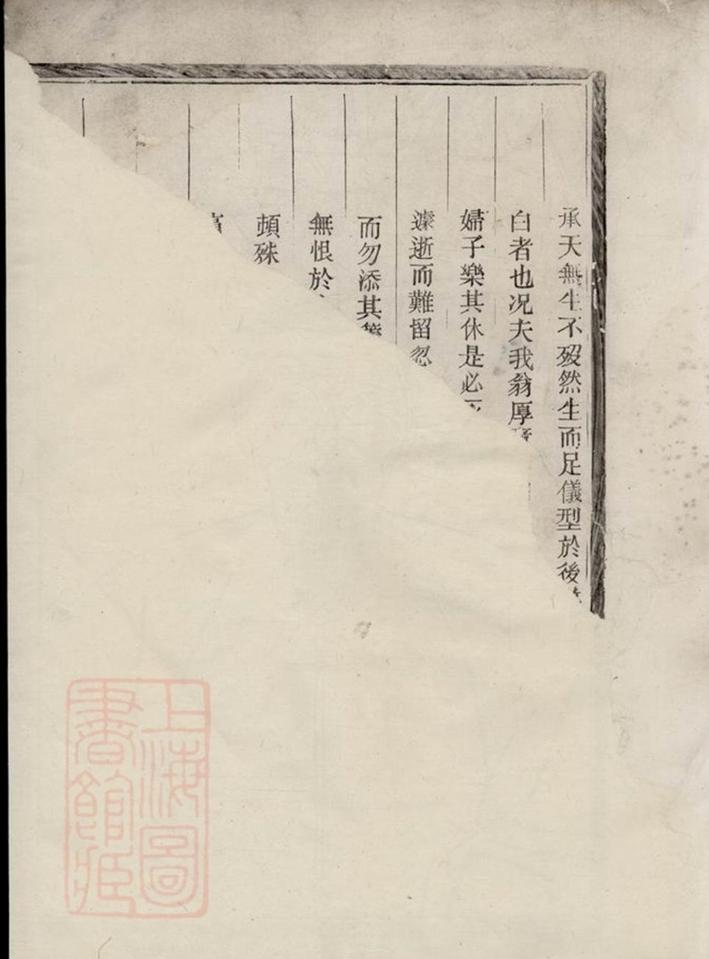 承天無生不歿然生而足儀型於後
白者也况夫我翁厚
婦子樂其休是必
遽逝而難留忽
而勿添其籌
無恨於
頭殊
上海圖
書館藏